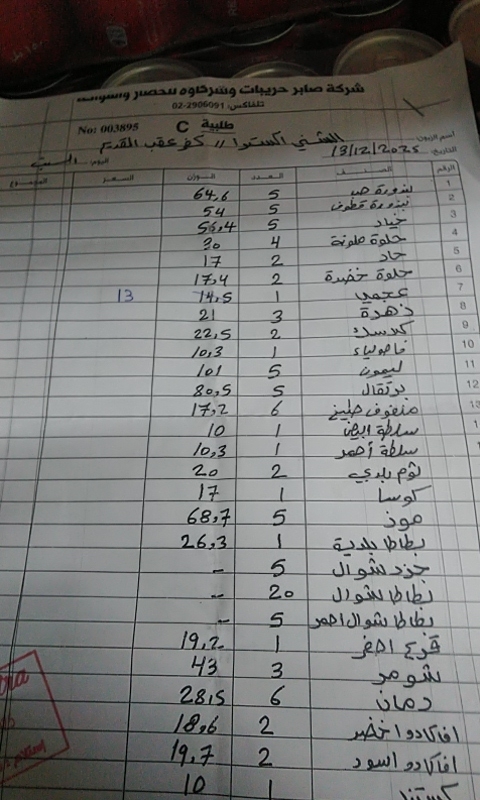 شركة صابر حريبات وشركاوه للخضار والفواكه
تلفاكس: 02-2906091
No: 003895 طلبية C
اسم الزبون: الشني اكسترا // كفر عقب المقدم
التاريخ: 13/12/2025 اليوم: السبت
الرقم الصنف العدد الوزن السعر المجموع
1 بندورة حب 5 64,6
2 بندورة قطوف 5 54
3 خيار 5 56,4
4 حلوة ملونة 4 30
5 حار 2 17
6 حلوة خضرة 2 17,4
7 عجمي 1 14,5 13
8 زهرة 3 21
9 كلاسك 2 22,5
10 فاصولياء 1 10,3
11 ليمون 5 101
12 برتقال 5 80,5
13 ملفوف 6 17,2
سلطة ابيض 1 10
سلطة أحمر 1 10,3
ثوم بلدي 2 20
كوسا 1 17
موز 5 68,7
بطاطا بلدية 1 26,3
جزر شوال 5 -
بطاطا شوال 20 -
بطاطا شوال احمر 5 -
قرع اصفر 1 19,2
شومر 3 43
رمان 6 28,5
افاكادو اخضر 2 18,6
افاكادو اسود 2 19,7
كستنا 1 10